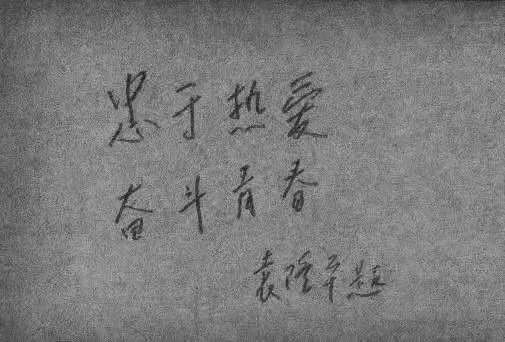 忠于热爱
奋斗青春
袁隆平题